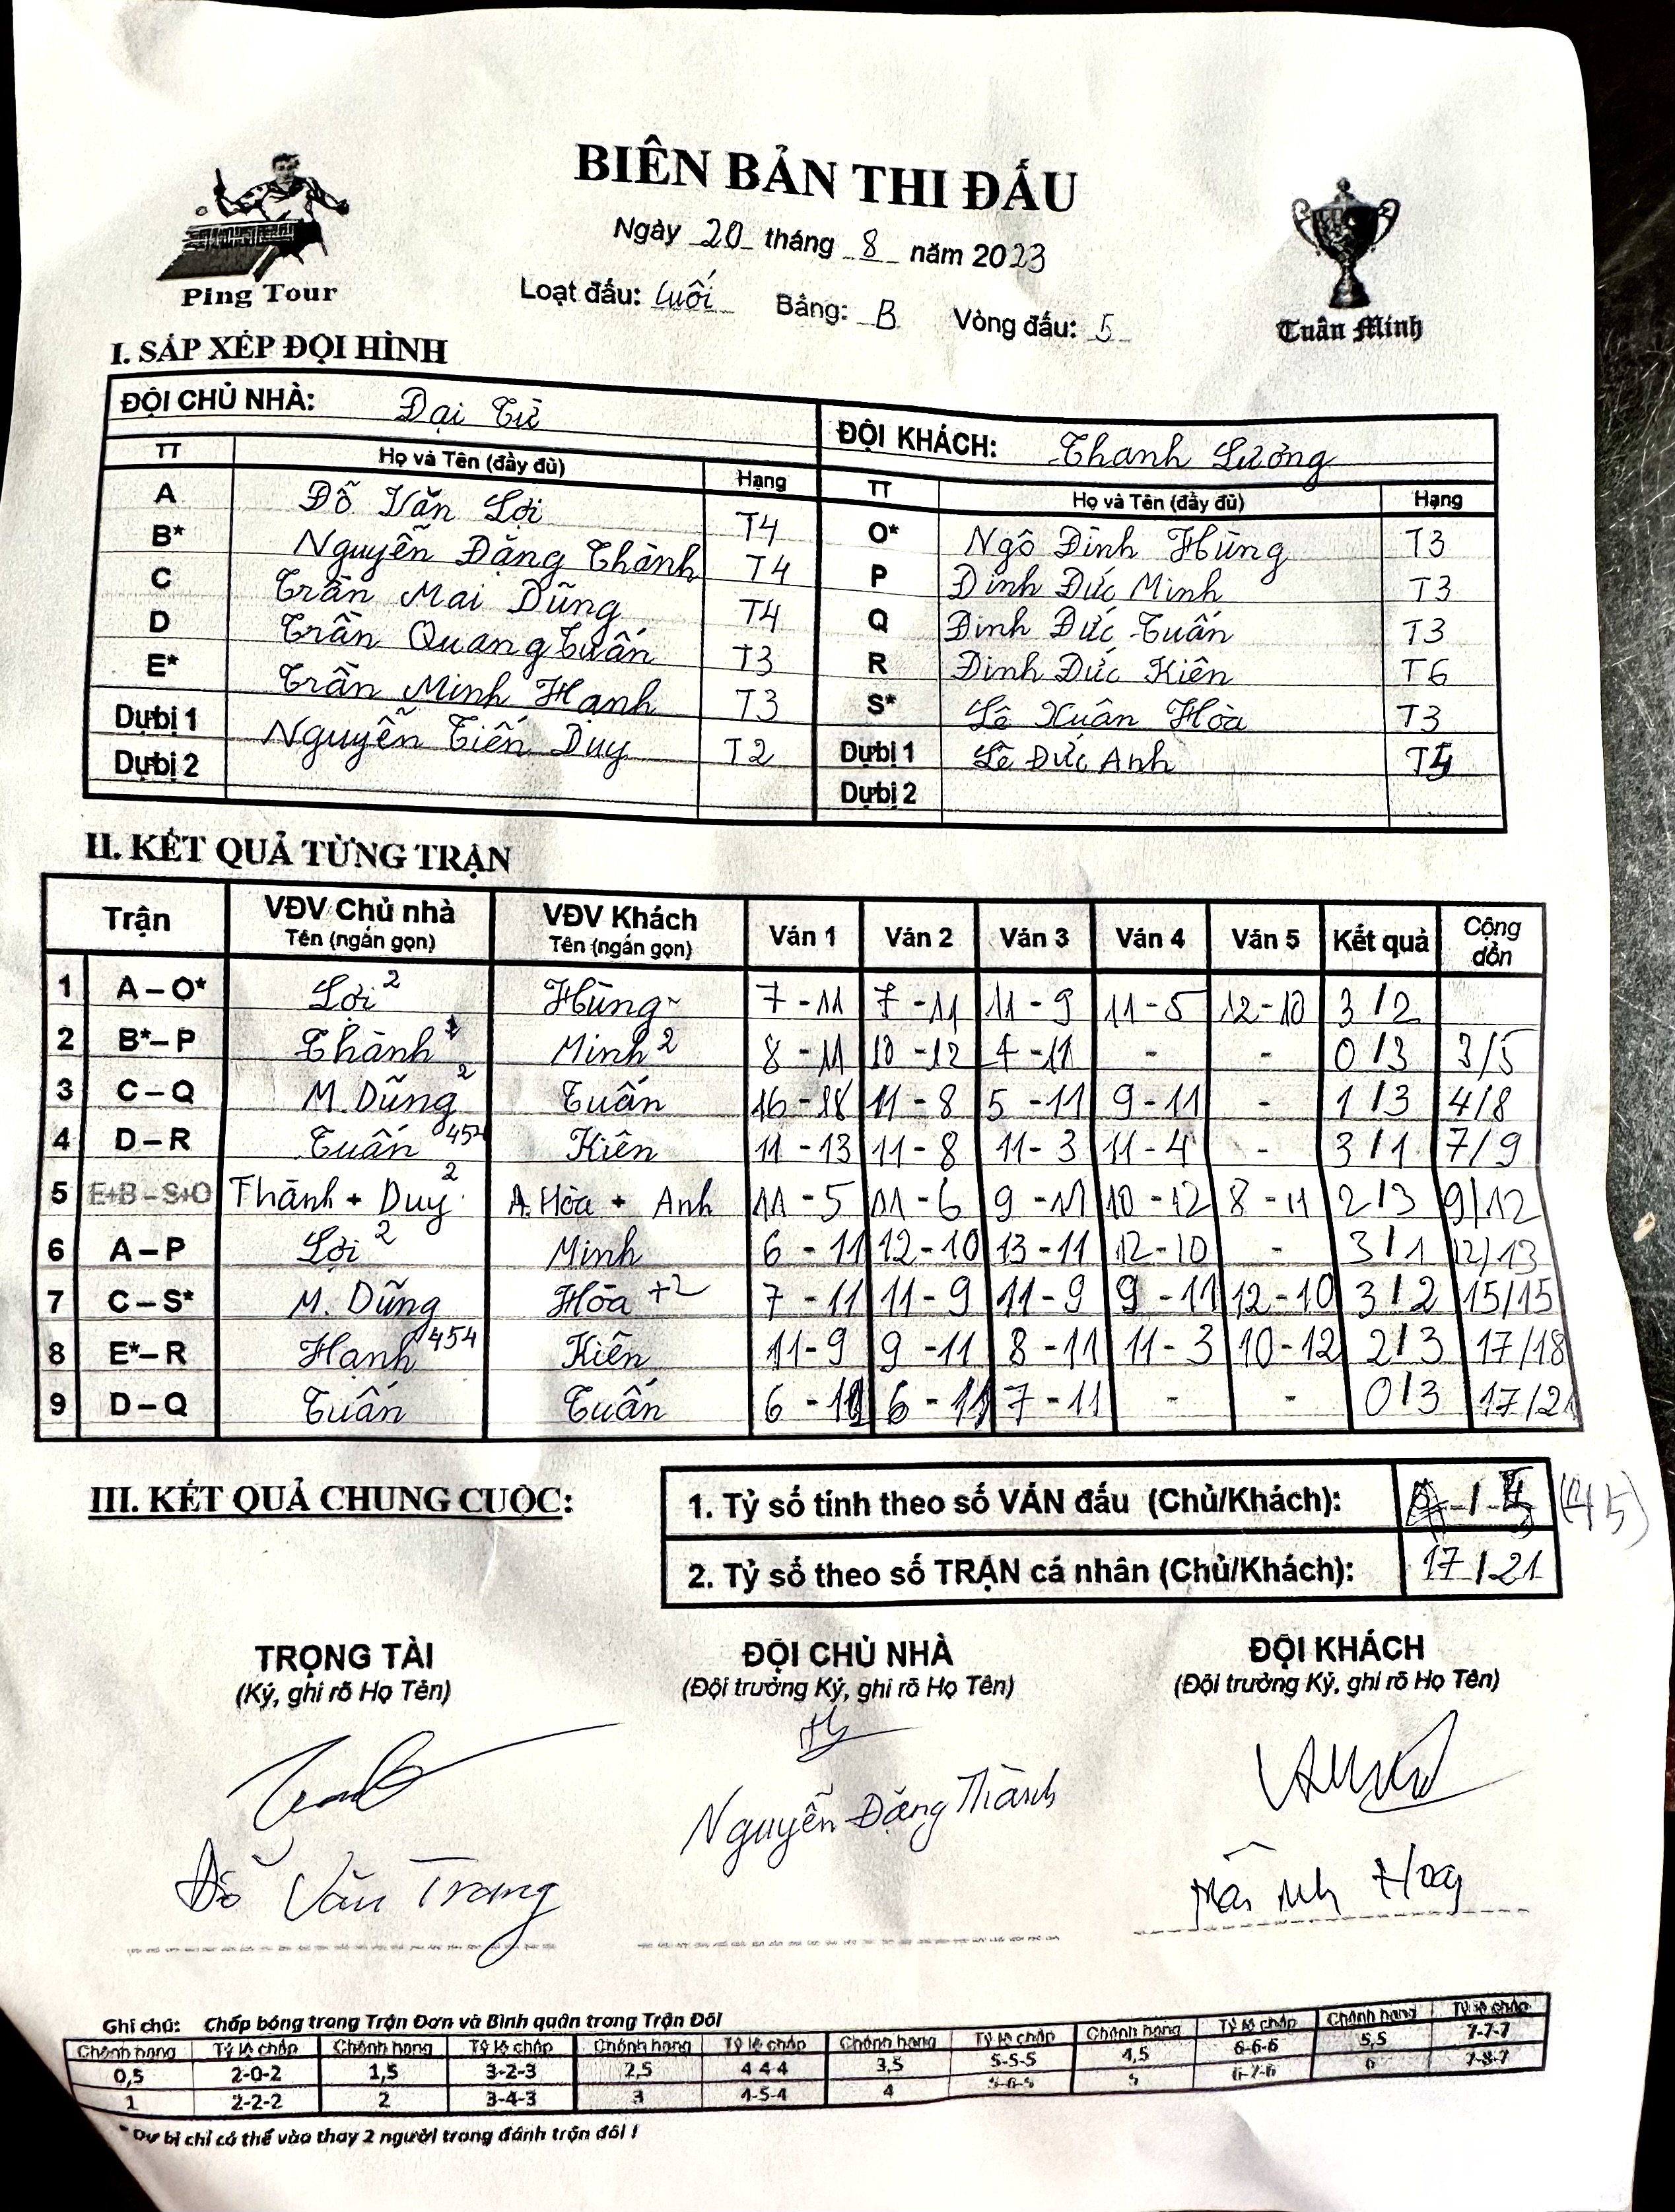 BIÊN BẢN THI ĐẤU
Ngày 20 tháng 8 năm 2023
Ping Tour
Loạt đấu: Cuối Bảng: B Vòng đấu: 5
Tuân Minh
I. SẮP XẾP ĐỘI HÌNH
ĐỘI CHỦ NHÀ: Đại Từ ĐỘI KHÁCH: Thanh Lương
TT Họ và Tên (đầy đủ) Hạng TT Họ và Tên (đầy đủ) Hạng
A Đỗ Văn Lợi T4 O* Ngô Đình Hùng T3
B* Nguyễn Đặng Thành T4 P Đinh Đức Minh T3
C Trần Mai Dũng T4 Q Đinh Đức Tuấn T3
D Trần Quang Tuấn T3 R Đinh Đức Kiên T6
E* Trần Minh Hạnh T3 S* Lê Xuân Hòa T3
Dự bị 1 Nguyễn Tiến Duy T2 Dự bị 1 Lê Đức Anh
Dự bị 2 Dự bị 2
II. KẾT QUẢ TỪNG TRẬN
Trận VĐV Chủ nhà VĐV Khách Ván 1 Ván 2 Ván 3 Ván 4 Ván 5 Kết quả Cộng dồn
Tên (ngắn gọn) Tên (ngắn gọn)
1 A – O* Lợi 2 Hùng 7 - 11 7 - 11 11 - 9 11 - 5 12 - 10 3 / 2
2 B* – P Thành Minh 2 8 - 11 10 - 12 4 - 11 - - 0 / 3 3/5
3 C – Q M. Dũng 2 Tuấn 16 - 18 11 - 8 5 - 11 9 - 11 - 1 / 3 4/8
4 D – R Tuấn 454 Kiên 11 - 13 11 - 8 11 - 3 11 - 4 - 3 / 1 7/9
5 E+B – S+O Thành + Duy 2 A. Hòa + Anh 11 - 5 11 - 6 9 - 11 10 - 12 8 - 11 2 / 3 9/12
6 A – P Lợi 2 Minh 6 - 11 12 - 10 13 - 11 12 - 10 - 3 / 1 12/13
7 C – S* M. Dũng Hòa +2 7 - 11 11 - 9 11 - 9 9 - 11 12 - 10 3 / 2 15/15
8 E* – R Hạnh 454 Kiên 11 - 9 9 - 11 8 - 11 11 - 3 10 - 12 2 / 3 17/18
9 D – Q Tuấn Tuấn 6 - 11 6 - 11 7 - 11 - - 0 / 3 17/21
III. KẾT QUẢ CHUNG CUỘC:
1. Tỷ số tính theo số VÁN đấu (Chủ/Khách):
2. Tỷ số theo số TRẬN cá nhân (Chủ/Khách): 17 / 21
TRỌNG TÀI ĐỘI CHỦ NHÀ ĐỘI KHÁCH
(Ký, ghi rõ Họ Tên) (Đội trưởng Ký, ghi rõ Họ Tên) (Đội trưởng Ký, ghi rõ Họ Tên)
Nguyễn Đặng Thành
Đỗ Văn Trang
Ghi chú: Chấp bóng trong Trận Đơn và Bình quân trong Trận Đôi
Chênh hạng Tỷ lệ chấp Chênh hạng Tỷ lệ chấp Chênh hạng Tỷ lệ chấp Chênh hạng Tỷ lệ chấp Chênh hạng Tỷ lệ chấp Chênh hạng Tỷ lệ chấp
0,5 2-0-2 1,5 3-2-3 2,5 4-4-4 3,5 5-5-5 4,5 6-6-6 5,5 7-7-7
1 2-2-2 2 3-4-3 3 4-5-4 4 5-6-5 5 6-7-6 6 7-8-7
* Dự bị chỉ có thể vào thay 2 người trong đánh trận đôi !